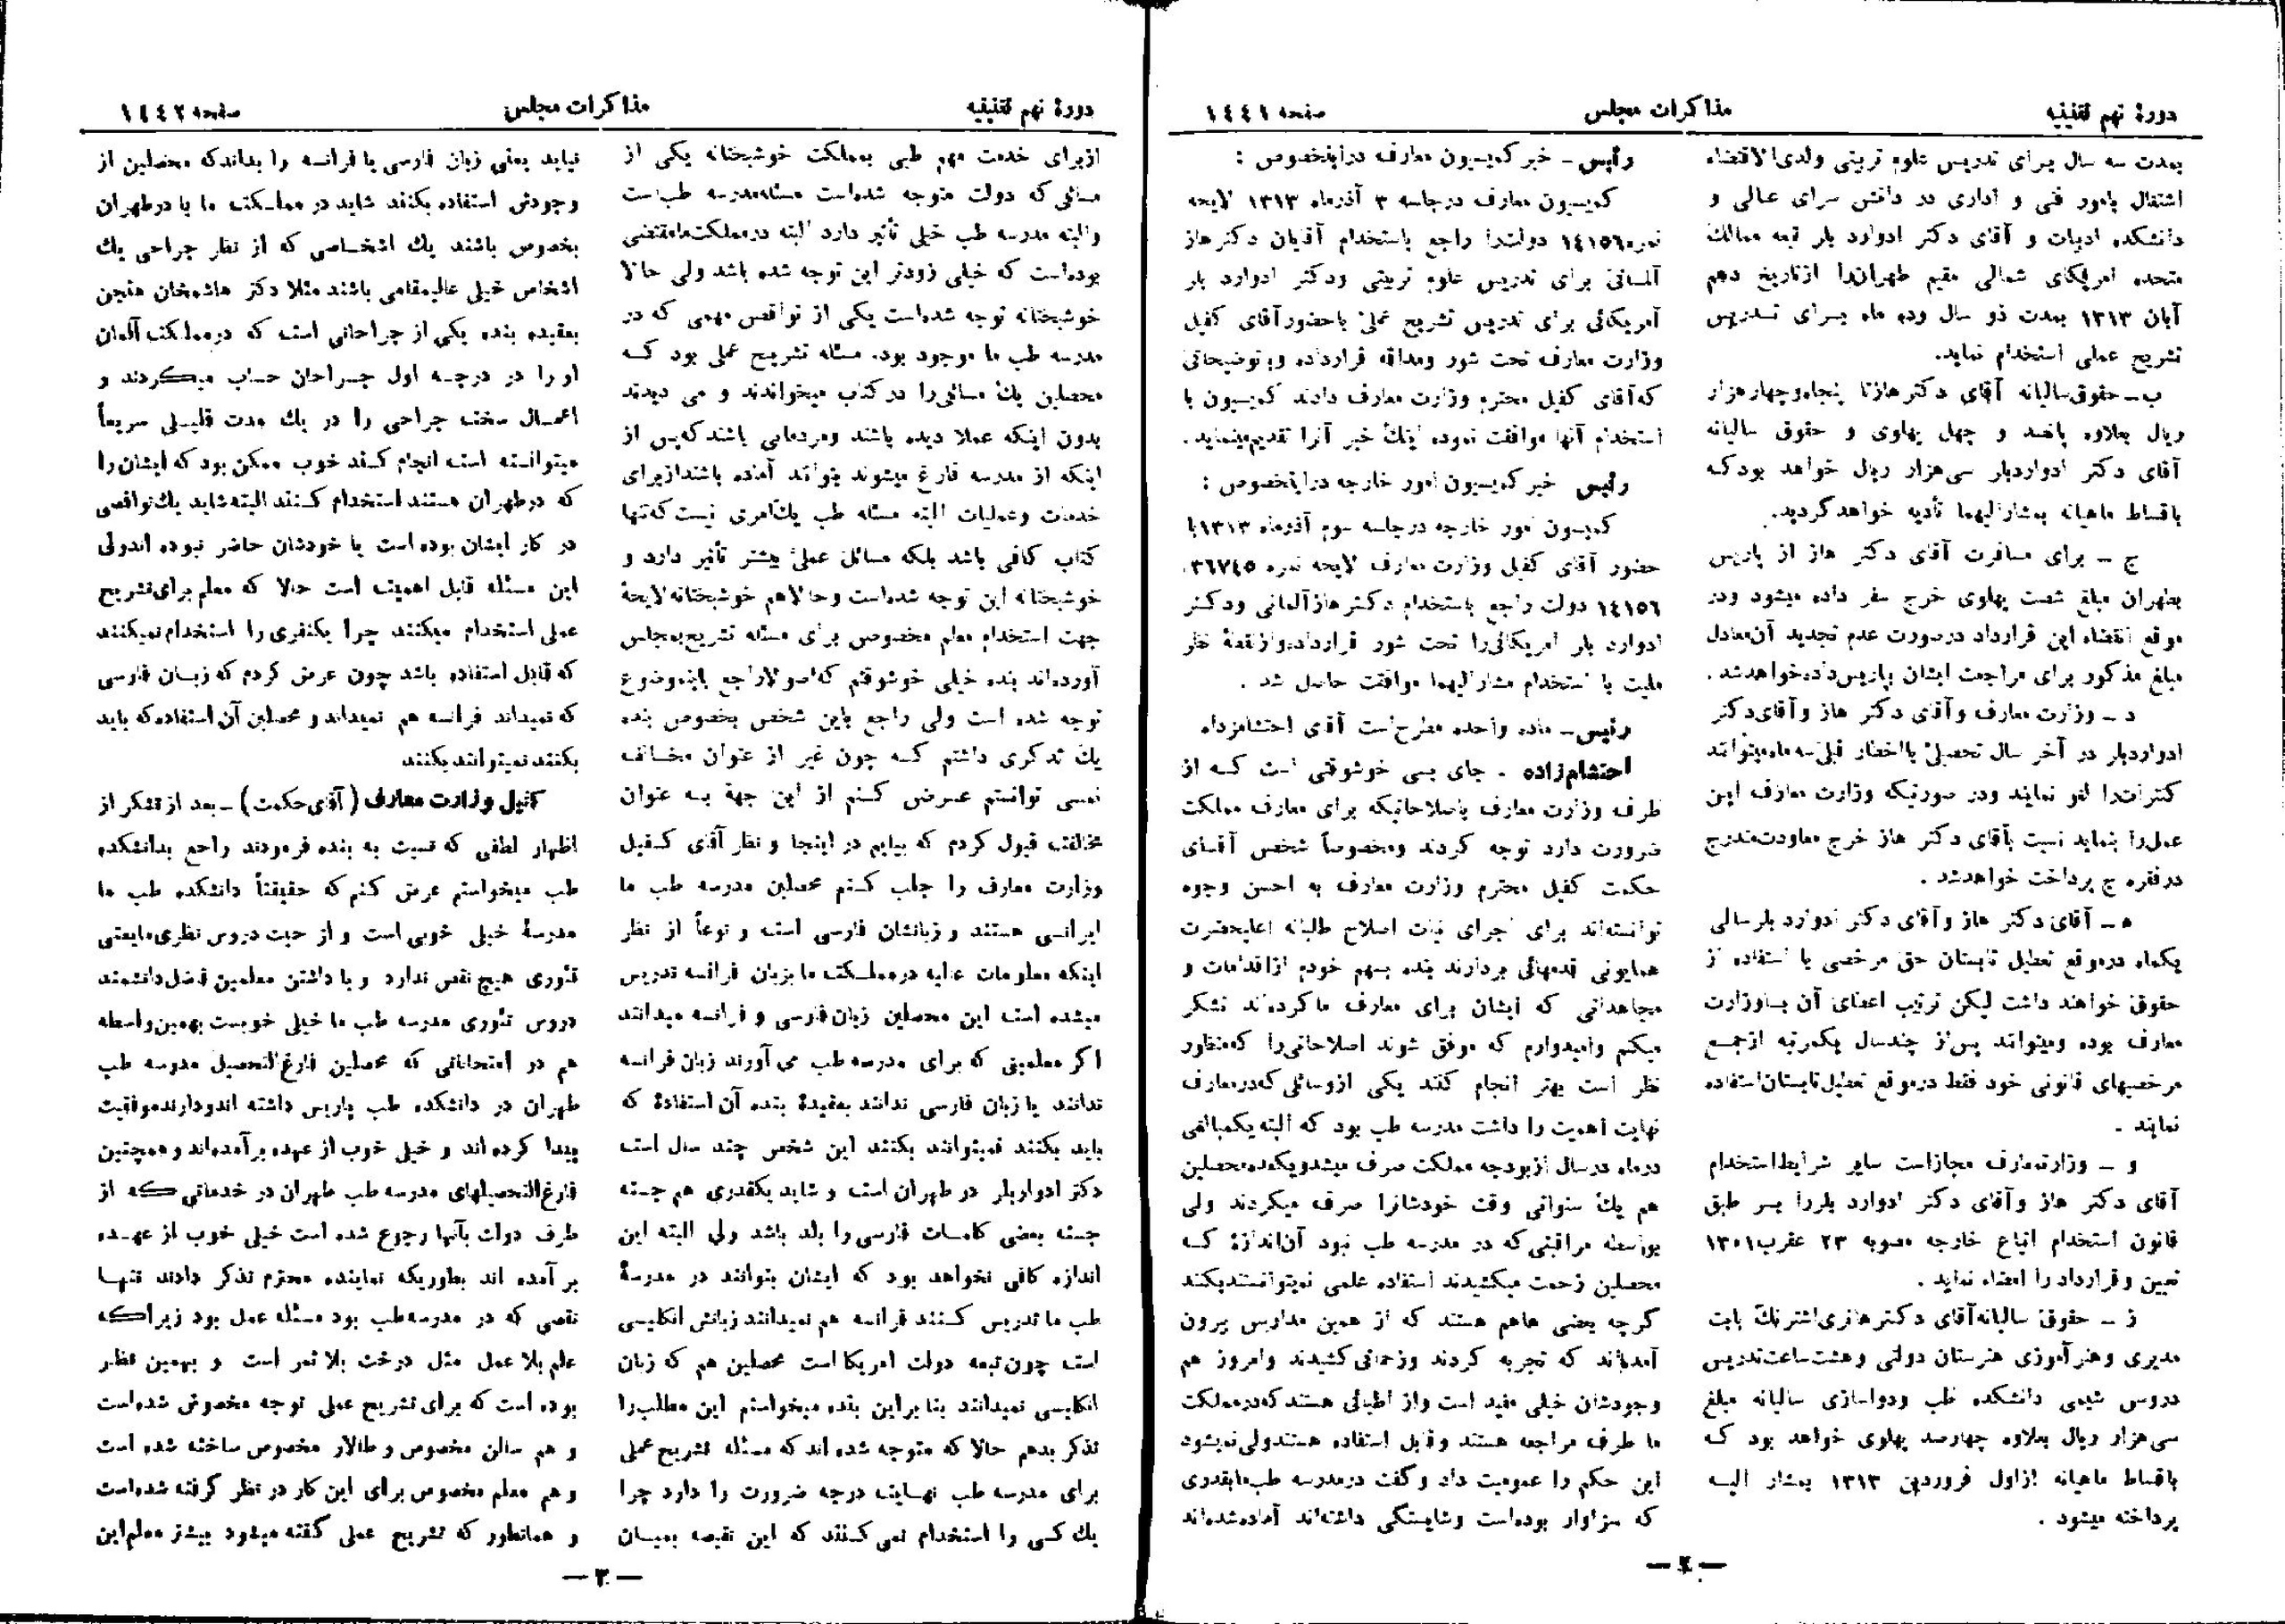 دورهٔ نهم تقنینیه
مذاکرات مجلس
صفحه ۱٤٤۱
بمدت سه سال برای تدریس علوم تربیتی ولدی‌الاقتضاء
اشتغال بامور فنی و اداری در دانش سرای عالی و
دانشکده ادبیات و آقای دکتر ادوارد بلر تبعه ممالک
متحده امریکای شمالی مقیم طهران‌را ازتاریخ دهم
آبان ۱۳۱۳ بمدت دو سال وده ماه برای تدریس
تشریح عملی استخدام نماید.
ب- حقوق سالیانه آقای دکتر هازتا پنجاه‌وچهار هزار
ریال بعلاوه پانصد و چهل پهلوی و حقوق سالیانه
آقای دکتر ادواردبلر سی‌هزار ریال خواهد بود که
باقساط ماهیانه بمشارالیهما تأدیه خواهد گردید.
ج - برای مسافرت آقای دکتر هاز از پاریس
بطهران مبلغ شصت پهلوی خرج سفر داده میشود ودر
موقع انقضاء این قرارداد درصورت عدم تجدید آن‌معادل
مبلغ مذکور برای مراجعت ایشان بپاریس‌داده‌خواهدشد.
د - وزارت معارف و آقای دکتر هاز و آقای‌دکتر
ادواردبلر در آخر سال تحصیلی بااخطار قبلی‌سه‌ماه‌میتوانند
کنترات‌را لغو نمایند ودر صورتیکه وزارت معارف این
عمل‌را بنماید نسبت بآقای دکتر هاز خرج معاودت‌مندرج
درفقره ج پرداخت خواهدشد.
ه - آقای دکتر هاز و آقای دکتر ادوارد بلر سالی
یکماه درموقع تعطیل تابستان حق مرخصی با استفاده از
حقوق خواهند داشت لیکن ترتیب اعطای آن با وزارت
معارف بوده ومیتوانند پس‌از چندسال یکمرتبه ازجمع
مرخصیهای قانونی خود فقط درموقع تعطیل‌تابستان‌استفاده
نمایند.
و - وزارت‌معارف مجازاست سایر شرایط‌استخدام
آقای دکتر هاز و آقای دکتر ادوارد بلررا بر طبق
قانون استخدام اتباع خارجه مصوبه ۲۳ عقرب۱۳۰۱
تعیین و قرارداد را امضاء نماید.
ز - حقوق سالیانه‌آقای دکترهانری‌اشترنک بابت
مدیری و هنرآموزی هنرستان دولتی و هشت‌ساعت‌تدریس
دروس شیمی دانشکده طب ودواسازی سالیانه مبلغ
سی‌هزار ریال بعلاوه چهارصد پهلوی خواهد بود که
باقساط ماهیانه ازاول فروردین ۱۳۱۳ بمشار الیه
پرداخته میشود.
رئیس - خبر کمیسیون معارف دراینخصوص:
کمیسیون معارف درجلسه ۳ آذرماه ۱۳۱۳ لایحه
نمره۱٤۱٥٦ دولت‌را راجع باستخدام آقایان دکترهاز
آلمانی برای تدریس علوم تربیتی ودکتر ادوارد بلر
آمریکائی برای تدریس تشریح عملی باحضورآقای کفیل
وزارت معارف تحت شور ومداقه قرارداده وبتوضیحاتی
که‌آقای کفیل محترم وزارت معارف دادند کمیسیون با
استخدام آنها موافقت نموده اینک خبر آنرا تقدیم‌مینماید.
رئیس خبر کمیسیون امور خارجه دراینخصوص:
کمیسیون امور خارجه درجلسه سوم آذرماه ۱۳۱۳با
حضور آقای کفیل وزارت معارف لایحه نمره ۳٦۷٤٥،
۱٤۱٥٦ دولت راجع باستخدام دکترهازآلمانی ودکتر
ادوارد بلر امریکائی‌را تحت شور قرارداده‌وازنقطهٔ نظر
ملیت با استخدام مشارالیهما موافقت حاصل شد.
رئیس- ماده واحده مطرح‌است آقای احتشام‌زاده
احتشام‌زاده - جای بسی خوشوقتی است که از
طرف وزارت معارف باصلاحاتیکه برای معارف مملکت
ضرورت دارد توجه کردند ومخصوصاً شخص آقای
حکمت کفیل محترم وزارت معارف به احسن وجوه
توانسته‌اند برای اجرای نیات اصلاح طلبانه اعلیحضرت
همایونی قدمهائی بردارند بنده بسهم خودم ازاقدامات و
مجاهداتی که ایشان برای معارف ماکرده‌اند تشکر
میکنم وامیدوارم که موفق شوند اصلاحاتی‌را که‌منظور
نظر است بهتر انجام کنند یکی ازوسائلی‌که‌درمعارف
نهایت اهمیت را داشت مدرسه طب بود که البته یکمبالغی
درماه درسال ازبودجه مملکت صرف میشدویکعده‌محصلین
هم یک سنواتی وقت خودشانرا صرف میکردند ولی
بواسطه مراقبتی‌که در مدرسه طب نبود آن‌اندازهٔ که
محصلین زحمت میکشیدند استفاده علمی نمیتوانستندبکنند
گرچه بعضی هاهم هستند که از همین مدارس بیرون
آمده‌اند که تجربه کردند وزحماتی‌کشیدند وامروز هم
وجودشان خیلی مفید است واز اطبائی هستند که‌درمملکت
ما طرف مراجعه هستند وقابل استفاده هستندولی‌نمیشود
این حکم را عمومیت داد وگفت درمدرسه طب‌مابقدری
که سزاوار بوده‌است وشایستگی داشته‌اند آماده‌شده‌اند
- ۲ -
دورهٔ نهم تقنینیه
مذاکرات مجلس
صفحه ۱٤٤۲
ازبرای خدمت مهم طبی بمملکت خوشبختانه یکی از
مسائلی که دولت متوجه شده‌است مسئله‌مدرسه طب‌است
والبته مدرسه طب خیلی تأثیر دارد البته درمملکت‌مامقتضی
بوده‌است که خیلی زودتر این توجه شده باشد ولی حالا
خوشبختانه توجه شده‌است یکی از نواقص مهمی که در
مدرسه طب ما موجود بود، مسئله تشریح عملی بود که
محصلین یک مسائلی‌را درکتاب میخواندند و می دیدند
بدون اینکه عملا دیده باشند ومردمانی باشند که‌پس از
اینکه از مدرسه فارغ میشوند بتوانند آماده باشندازبرای
خدمات وعملیات البته مسئله طب یک‌امری نیست‌که‌تنها
کتاب کافی باشد بلکه مسائل عملی بیشتر تأثیر دارد و
خوشبختانه این توجه شده‌است وحالاهم خوشبختانه‌لایحهٔ
جهت استخدام معلم مخصوص برای مسئله تشریح‌بمجلس
آورده‌اند بنده خیلی خوشوقتم که‌اصولاراجع باینموضوع
توجه شده است ولی راجع باین شخص بخصوص بنده
یک تذکری داشتم که چون غیر از عنوان مخالف
نمی توانستم عرض کنم از این جهة به عنوان
مخالفت قبول کردم که بیایم در اینجا و نظر آقای کفیل
وزارت معارف را جلب کنم محصلین مدرسه طب ما
ایرانی هستند و زبانشان فارسی است و نوعاً از نظر
اینکه معلومات عالیه درمملکت ما بزبان فرانسه تدریس
میشده است این محصلین زبان‌فارسی و فرانسه میدانند
اگر معلمینی که برای مدرسه طب می آورند زبان فرانسه
ندانند یا زبان فارسی ندانند بعقیدهٔ بنده آن استفادهٔ که
باید بکنند نمیتوانند بکنند این شخص چند سال است
دکتر ادواربلر در طهران است و شاید یکقدری هم جسته
جسته بعضی کلمات فارسی را بلد باشد ولی البته این
اندازه کافی نخواهد بود که ایشان بتوانند در مدرسهٔ
طب ما تدریس کنند فرانسه هم نمیدانند زبانش انگلیسی
است چون تبعه دولت امریکا است محصلین هم که زبان
انگلیسی نمیدانند بنا براین بنده میخواستم این مطلب‌را
تذکر بدهم حالا که متوجه شده اند که مسئله تشریح عملی
برای مدرسه طب نهایت درجه ضرورت را دارد چرا
یک کسی را استخدام نمی کنند که این نقیصه بمیان
نیاید یعنی زبان فارسی یا فرانسه را بداند که محصلین از
وجودش استفاده بکنند شاید در مملکت ما یا درطهران
بخصوص باشند یک اشخاصی که از نظر جراحی یک
اشخاص خیلی عالیمقامی باشند مثلا دکتر هاشمخان هنجن
بعقیده بنده یکی از جراحانی است که درمملکت آلمان
او را در درجه اول جراحان حساب میکردند و
اعمال سخت جراحی را در یک مدت قلیلی سریعاً
میتوانسته است انجام کند خوب ممکن بود که ایشان را
که درطهران هستند استخدام کنند البته شاید یک نواقصی
در کار ایشان بوده است یا خودشان حاضر نبوده اند‌ولی
این مسئله قابل اهمیت است حالا که معلم برای‌تشریح
عملی استخدام میکنند چرا یکنفری را استخدام نمیکنند
که قابل استفاده باشد چون عرض کردم که زبان فارسی
که نمیداند فرانسه هم نمیداند و محصلین آن استفاده که باید
بکنند نمیتوانند بکنند
کفیل وزارت معارف (آقای حکمت) - بعد از تشکر از
اظهار لطفی که نسبت به بنده فرمودند راجع بدانشکده
طب میخواستم عرض کنم که حقیقتاً دانشکده طب ما
مدرسهٔ خیلی خوبی است و از حیث دروس نظری‌مایعنی
تئوری هیچ نقص ندارد و با داشتن معلمین فاضل‌دانشمند
دروس تئوری مدرسه طب ما خیلی خوبست بهمین‌واسطه
هم در امتحاناتی که محصلین فارغ‌التحصیل مدرسه طب
طهران در دانشکده طب پاریس داشته اند‌و‌دارند‌موفقیت
پیدا کرده اند و خیلی خوب از عهده برآمده‌اند و همچنین
فارغ‌التحصیلهای مدرسه طب طهران در خدماتی که از
طرف دولت بآنها رجوع شده است خیلی خوب از عهده
بر آمده اند بطوریکه نماینده محترم تذکر دادند تنها
نقصی که در مدرسه‌طب بود مسئله عمل بود زیرا که
علم بلا عمل مثل درخت بلا ثمر است و بهمین نظر
بوده است که برای تشریح عملی توجه مخصوص شده‌است
و هم سالن مخصوص و طالار مخصوص ساخته شده است
و هم معلم مخصوص برای این کار در نظر گرفته شده‌است
و همانطور که تشریح عملی گفته میشود بیشتر معلم این
- ۳ -